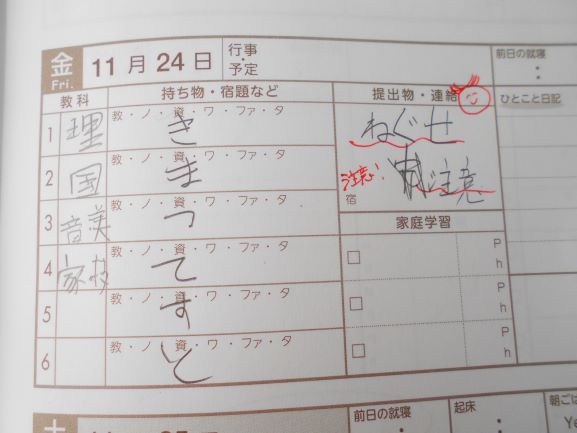 金 Fri. 11月24日 行事・予定 前日の就寝 :
教科 持ち物・宿題など 提出物・連絡 ひとこと日記
1 理 教・ノ・資・ワ・ファ・タ き ねぐせ
2 国 教・ノ・資・ワ・ファ・タ ま 注意! 注意
宿
3 音美 教・ノ・資・ワ・ファ・タ っ 家庭学習
4 家技 教・ノ・資・ワ・ファ・タ て P h
5 教・ノ・資・ワ・ファ・タ す P h
6 教・ノ・資・ワ・ファ・タ と P h
土 前日の就寝 : 起床 : 朝ごは